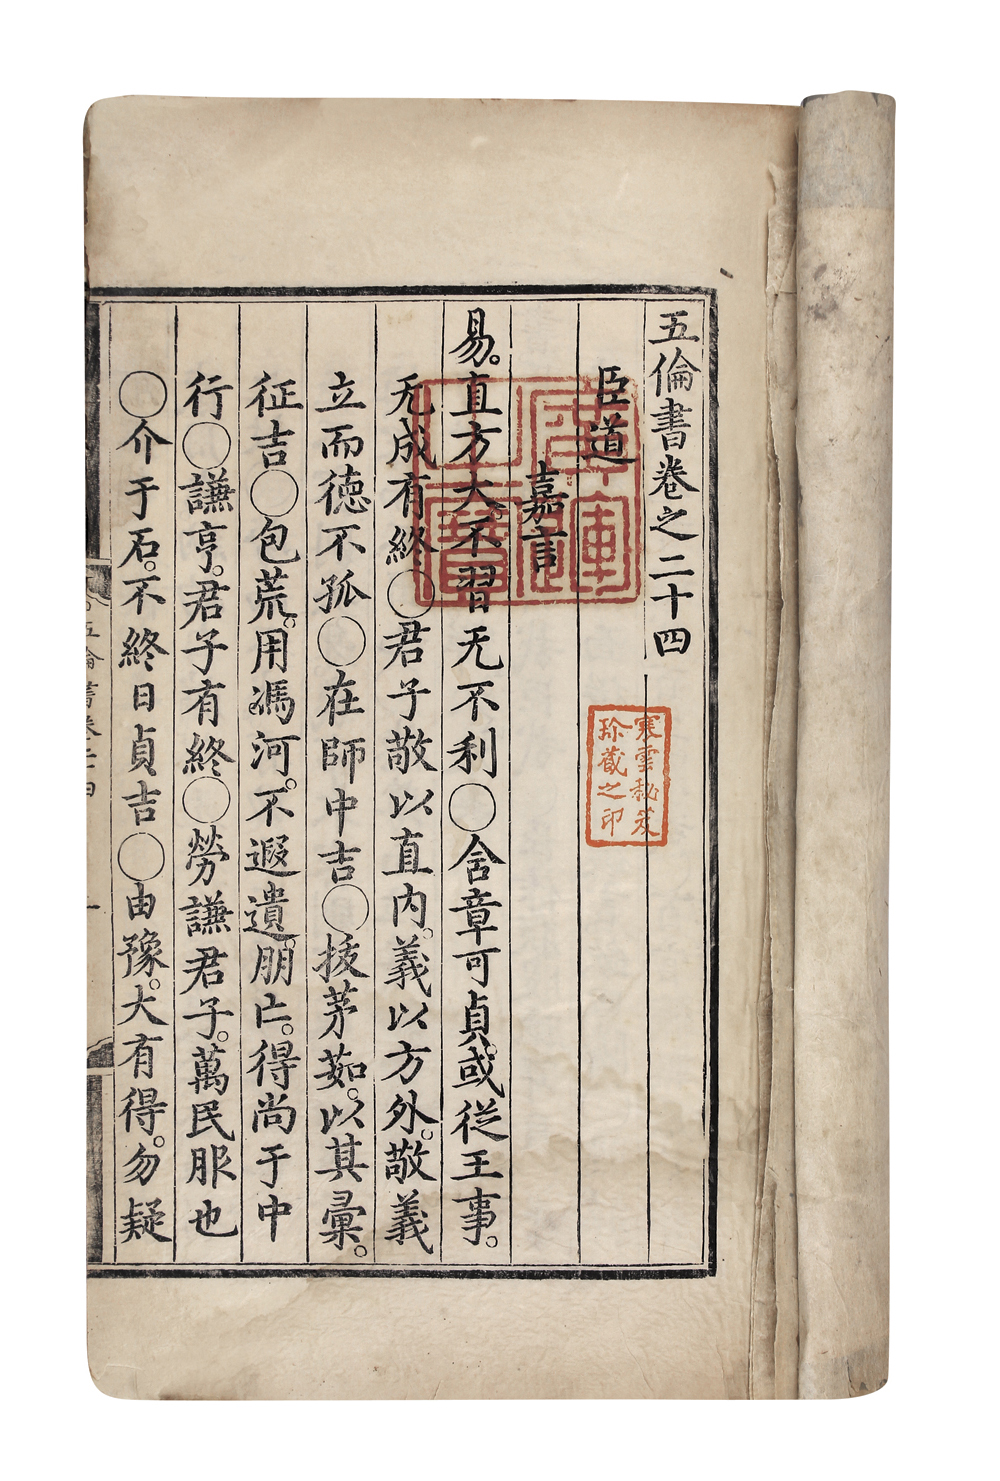 五倫書卷之二十四
臣道
嘉言
易。直方大。不習无不利〇含章可貞。或從王事。
无成有終〇君子敬以直內。義以方外。敬義
立而徳不孤〇在師中吉〇拔茅茹。以其彙。
征吉〇包荒。用馮河。不遐遺。朋亡。得尚于中
行〇謙亨。君子有終〇勞謙君子。萬民服也
〇介于石。不終日貞吉〇由豫。大有得。勿疑
五倫書卷二十四
一
寒雲秘笈
珍藏之印